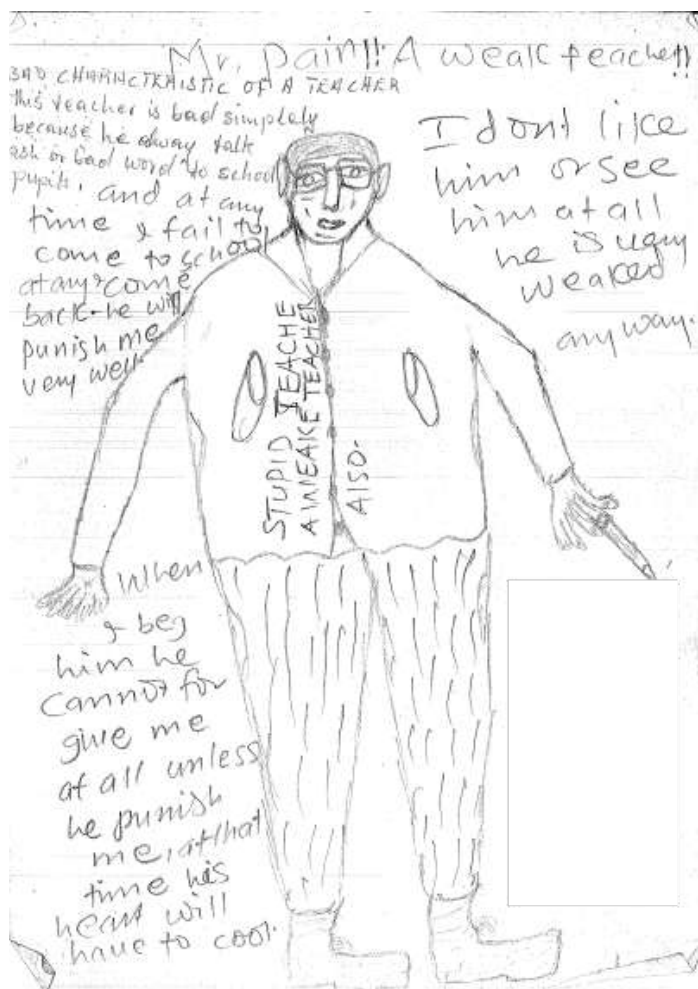 Mr. Pain!! A weak teacher!!
BAD CHARACTRAISTIC OF A TEACHER
this teacher is bad simplely
because he alway talk
ash or bad word to school
pupils, and at any
time I fail to
come to school
at any I come
back he will
punish me
very well
I dont like
him or see
him at all
he is very
weaked
any way.
STUPID TEACHE
A WEAKE TEACHER
AlSO.
When
I beg
him he
Cannot for
give me
at all unless
he punish
me, at that
time his
heart will
have to cool.